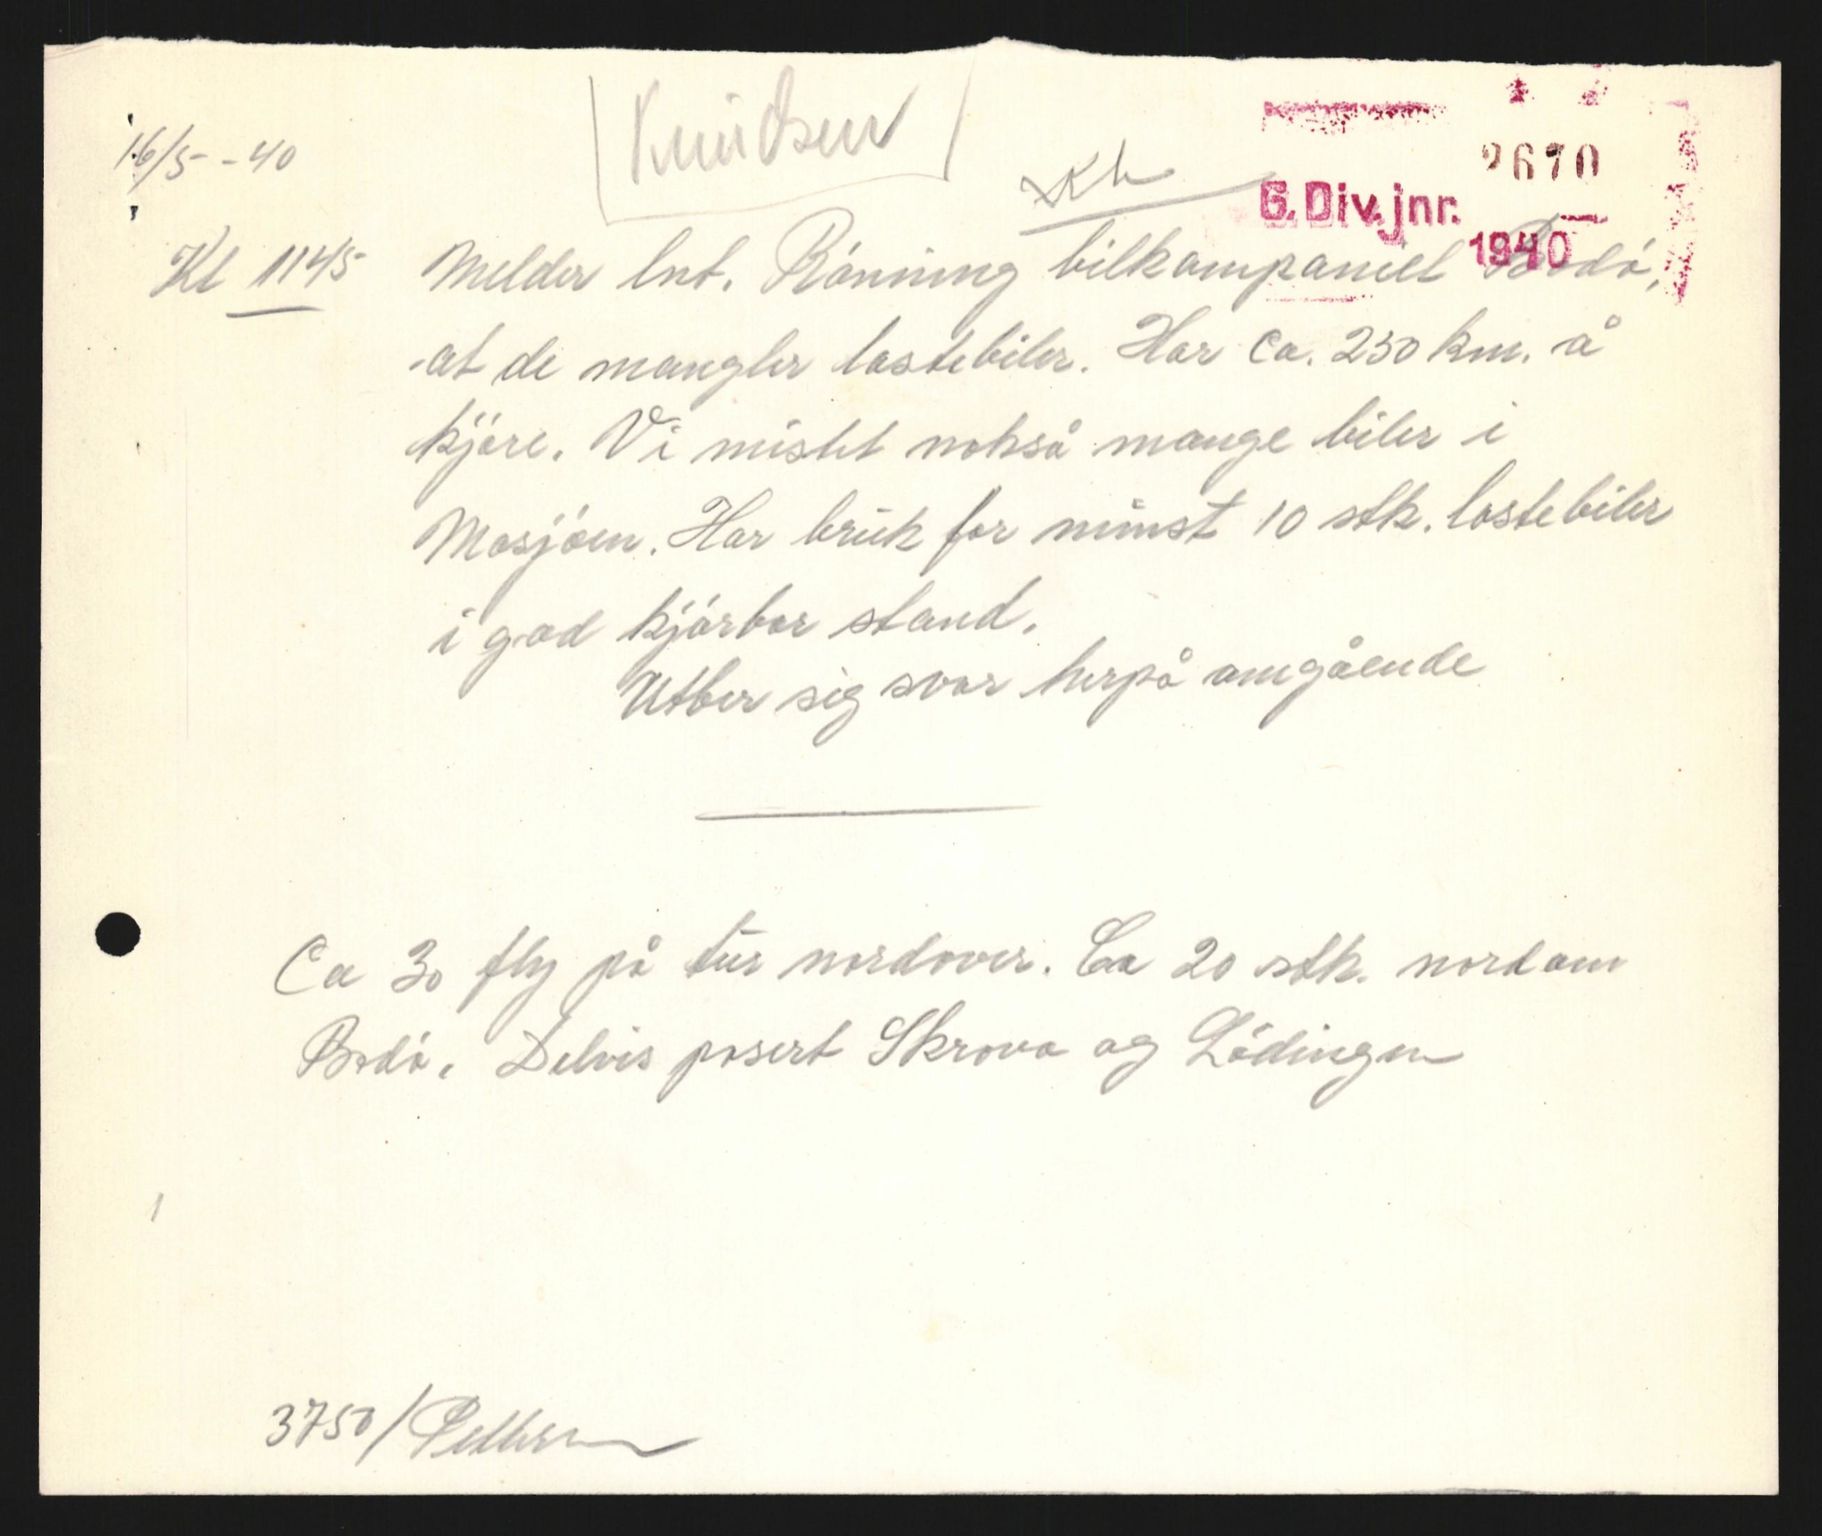 Knudsen
16/5 - 40
2670
6. Div. jnr.
1940
Kl 1145 Melder lnt. Rönning bilkompaniet Bodö,
at de mangler lastebiler. Har ca. 250 km. å
kjöre. Vi mistet nokså mange biler i
Mosjöen. Har bruk for minst 10 stk. lastebiler
i god kjörbar stand.
Utber sig svar herpå omgående
Ca 30 fly på tur nordover. Ca 20 stk. nord om
Bodö. Delvis pasert Skrova og Lödingen
3750/Pettersen